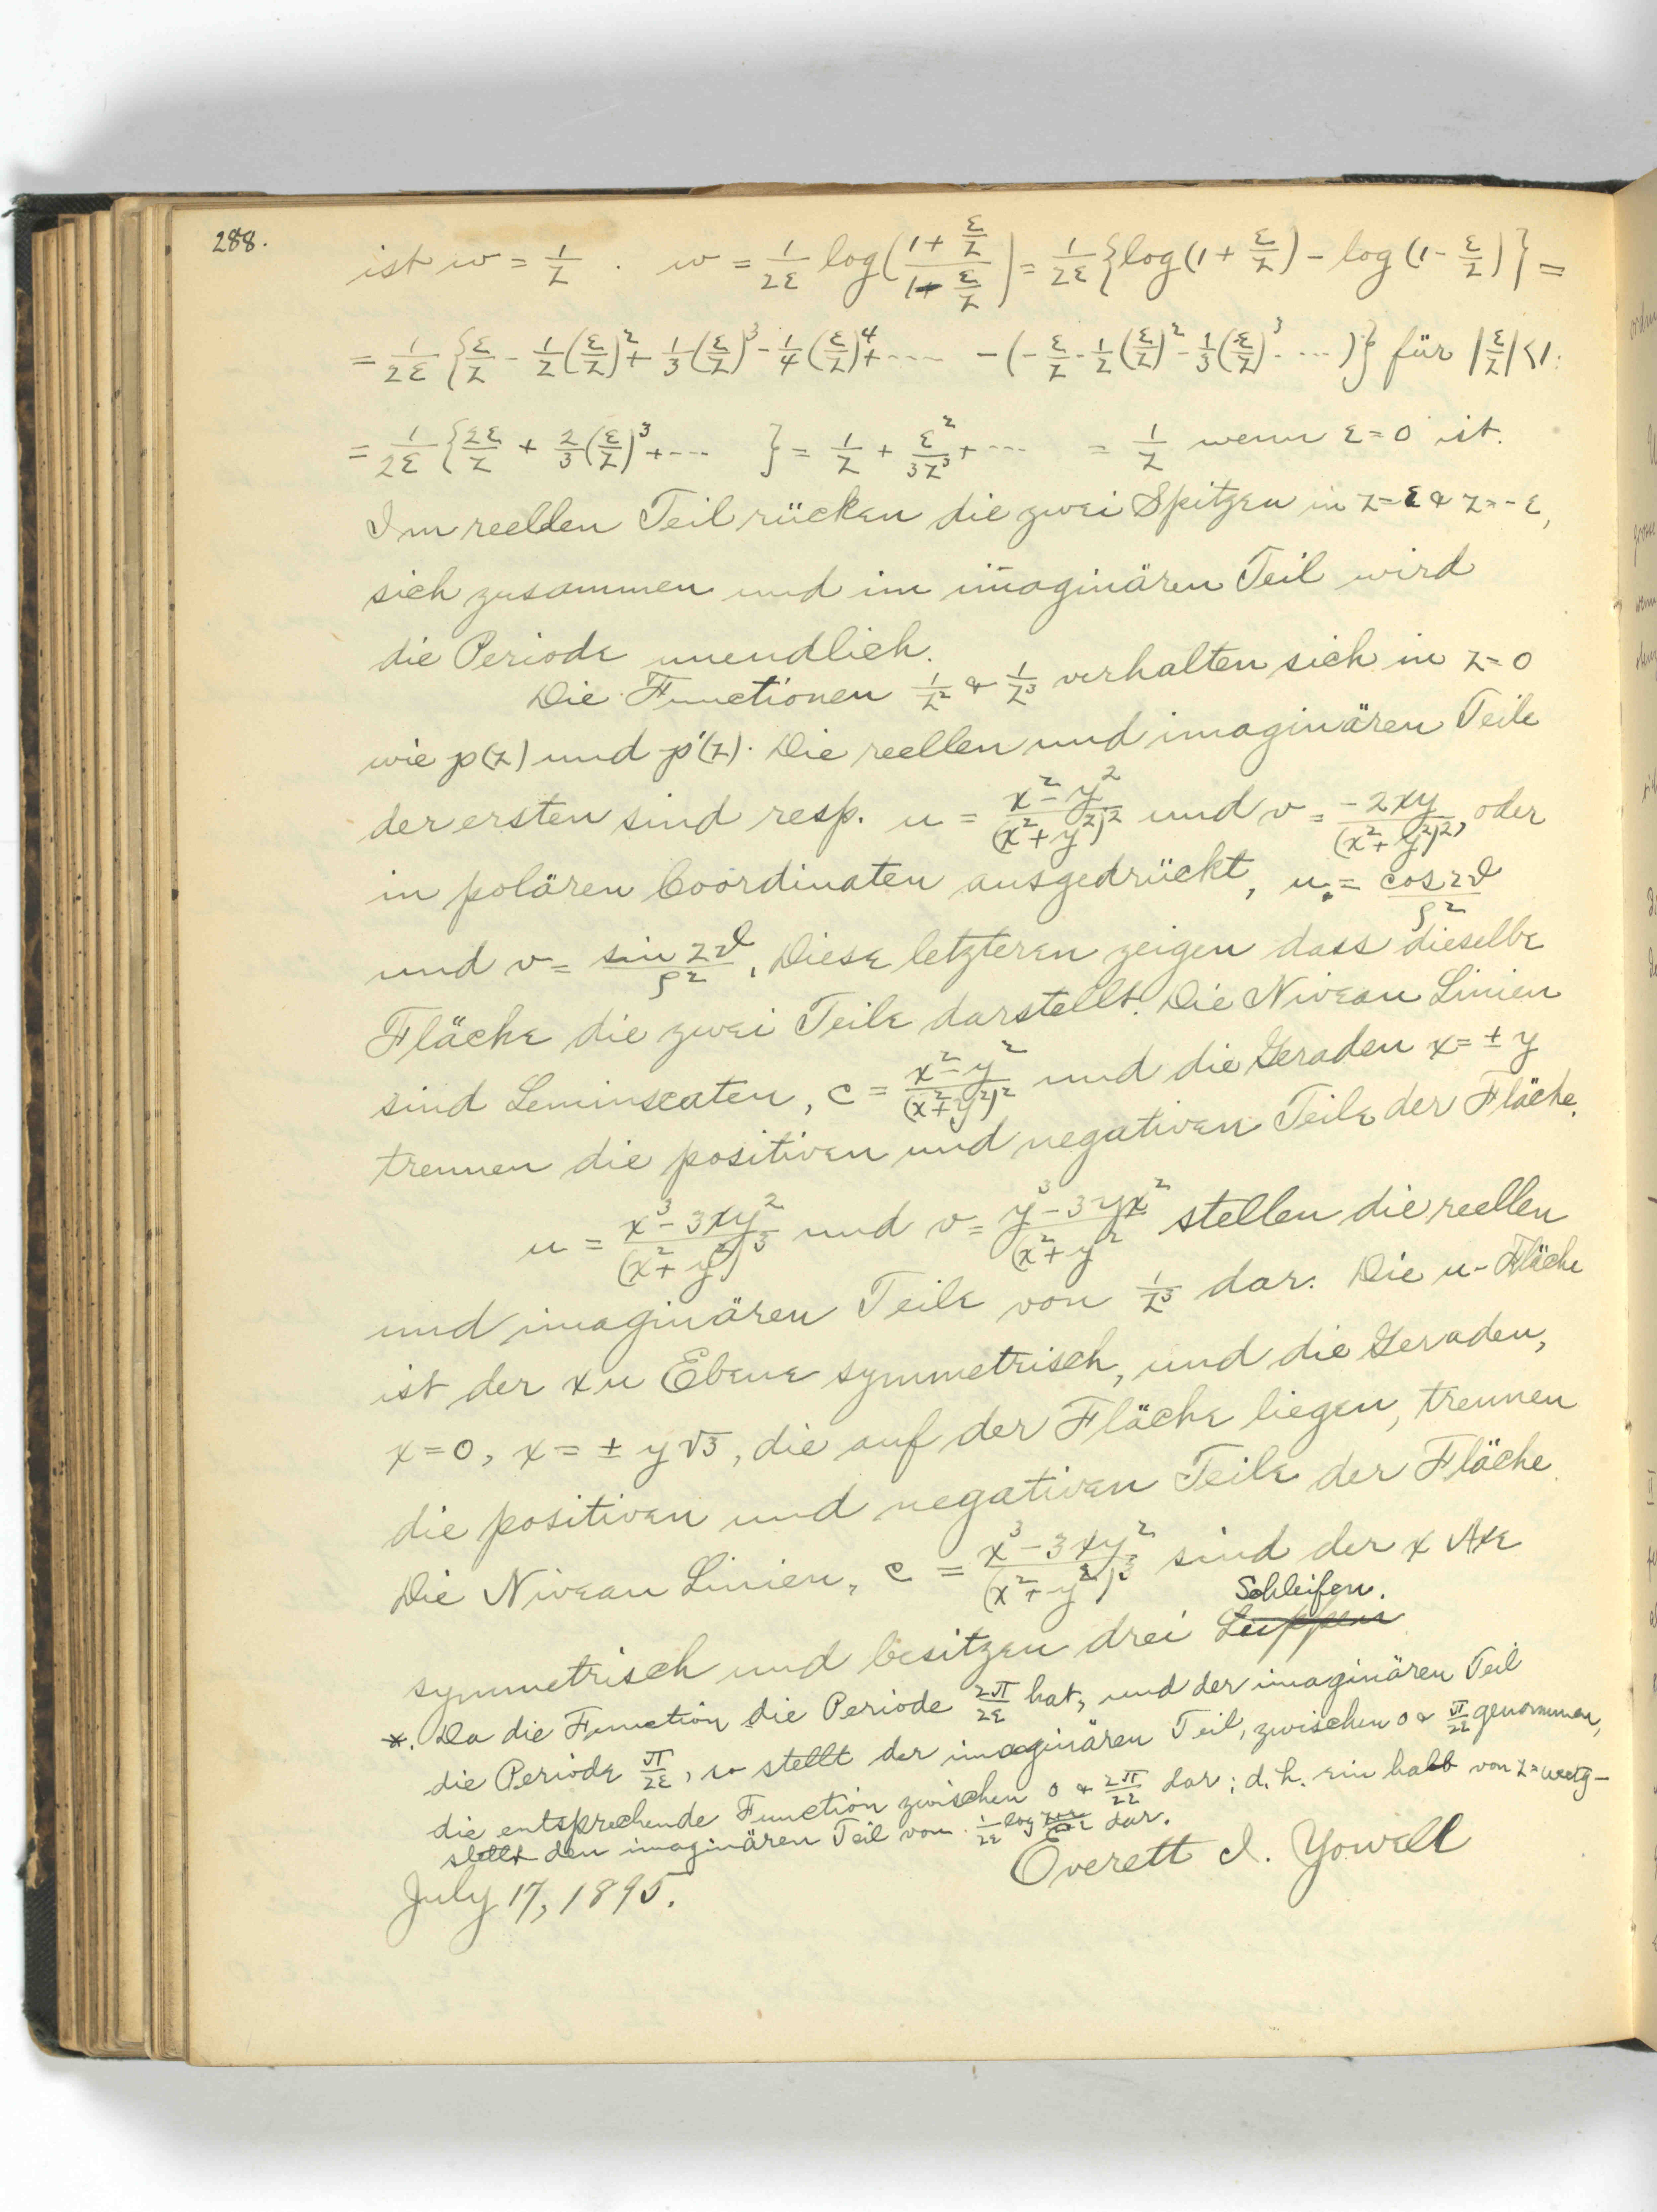 288.
ist w = 1/z . w = 1/2ε log((1+ ε/z)/(1- ε/z)) = 1/2ε {log(1+ ε/z) - log(1- ε/z)} =
= 1/2ε {ε/z - 1/2(ε/z)² + 1/3(ε/z)³ - 1/4(ε/z)⁴ + ---- - (- ε/z - 1/2(ε/z)² - 1/3(ε/z)³ - ...)} für |ε/z|<1:
= 1/2ε {2ε/z + 2/3(ε/z)³ + --- } = 1/z + ε²/3z³ + --- = 1/z wenn ε=0 ist.
Im reellen Teil rücken die zwei Spitzen in z=ε & z=-ε,
sich zusammen und im imaginären Teil wird
die Periode unendlich.
Die Functionen 1/z² & 1/z³ verhalten sich in z=0
wie p(z) und p'(z). Die reellen und imaginären Teile
der ersten sind resp. u = (x²-y²)/(x²+y²)² und v = -2xy/(x²+y²)², oder
in polären Coordinaten ausgedrückt, u = cos2ϑ/ρ²
und v = sin2ϑ/ρ². Diese letzteren zeigen dass dieselbe
Fläche die zwei Teile darstellt. Die Niveau Linien
sind Leminscaten, c = (x²-y²)/(x²+y²)² und die Geraden x=±y
trennen die positiven und negativen Teile der Fläche.
u = (x³-3xy²)/(x²+y²)³ und v = (y³-3yx²)/(x²+y² stellen die reellen
und imaginären Teile von 1/z³ dar. Die u-Fläche
ist der xu Ebene symmetrisch, und die Geraden,
x=0, x=±y√3, die auf der Fläche liegen, trennen
die positiven und negativen Teile der Fläche.
Die Niveau Linien, c = (x³-3xy²)/(x²+y²)³ sind der x Axe
Schleifen.
symmetrisch und besitzen drei
*. Da die Function die Periode 2π/2ε hat, und der imaginären Teil
die Periode π/2ε, so stellt der imaginären Teil, zwischen 0 & π/2ε genommen,
die entsprechende Function zwischen 0 & 2π/2ε dar; d.h. ein halb von
stellt den imaginären Teil von 1/2ε log dar.
Everett I. Yowell
July 17, 1895.